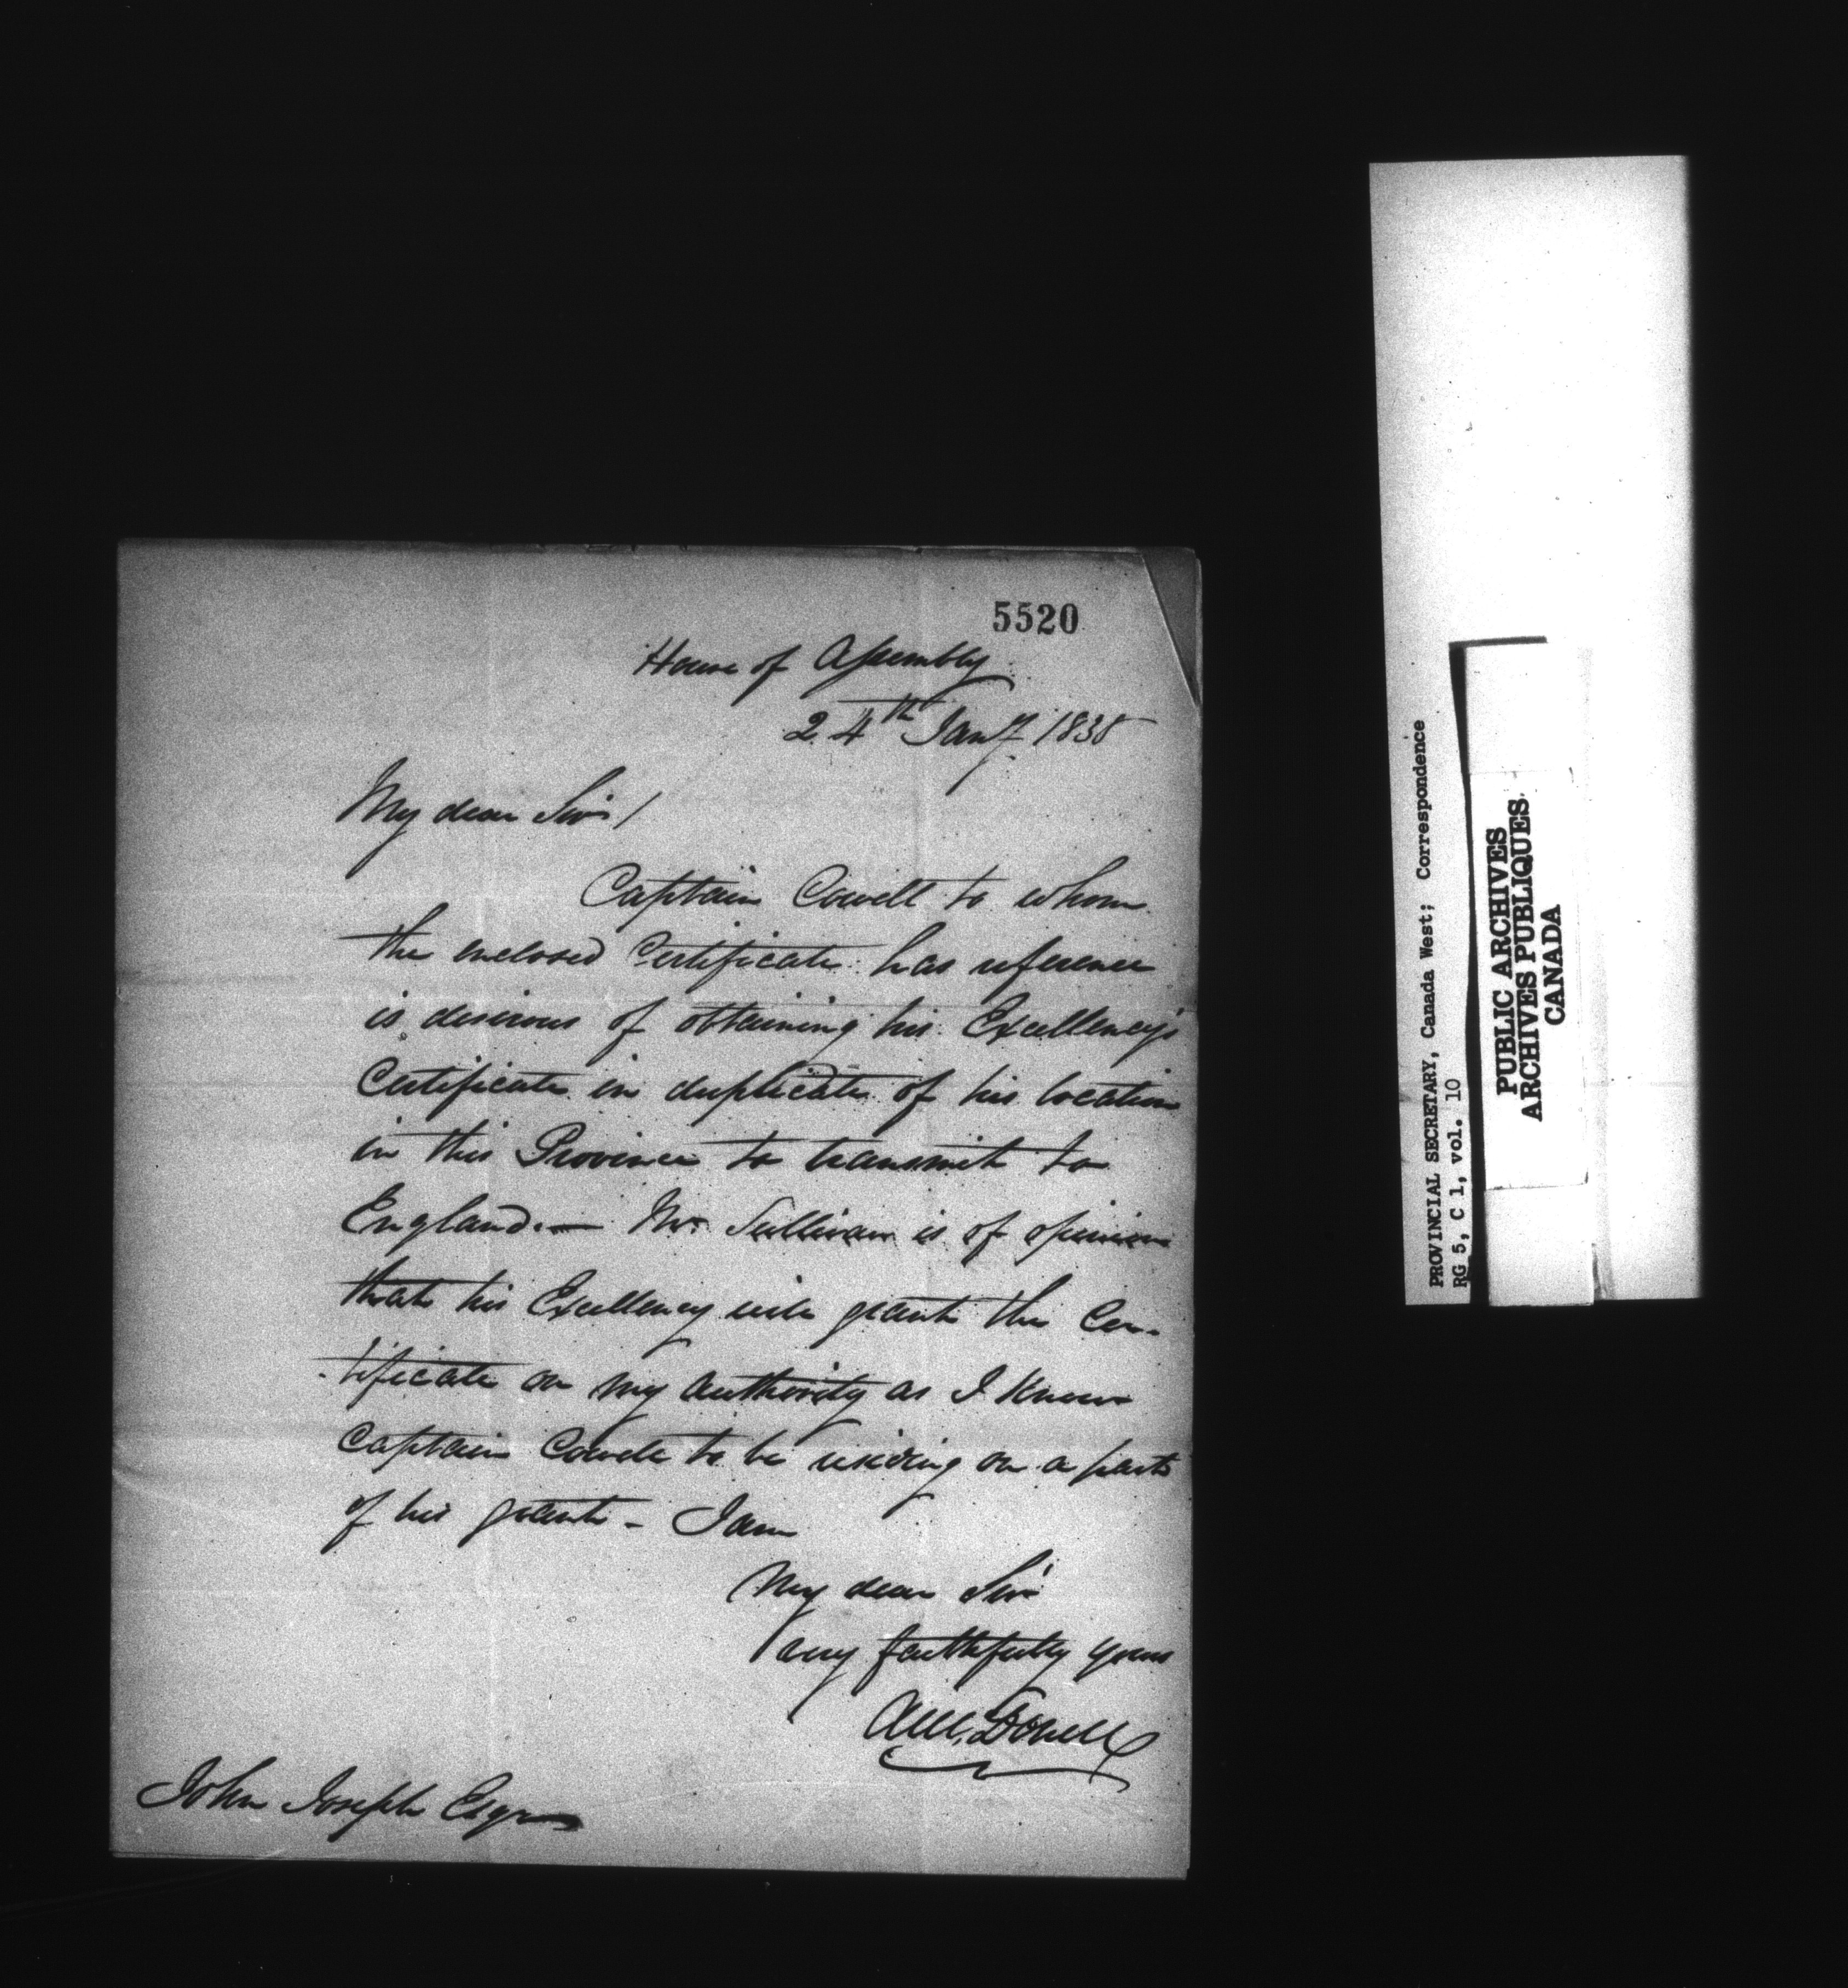 5520
House of Assembly
24th Jany 1838
My dear Sir /
Captain Cowell to whom
the enclosed Certificate has reference
is desirous of obtaining his Excellency's
Certificate in duplicate of his location
in this Province to transmit to
England.— Mr Sullivan is of opinion
that his Excellency will grant the Cer-
-tificate on my authority as I know
Captain Cowell to be residing on a part
of his grant – I am
My dear Sir
very faithfully yours
John Joseph Esqre
PROVINCIAL SECRETARY, Canada West; Correspondence
RG 5, C 1, vol. 10
PUBLIC ARCHIVES
ARCHIVES PUBLIQUES
CANADA